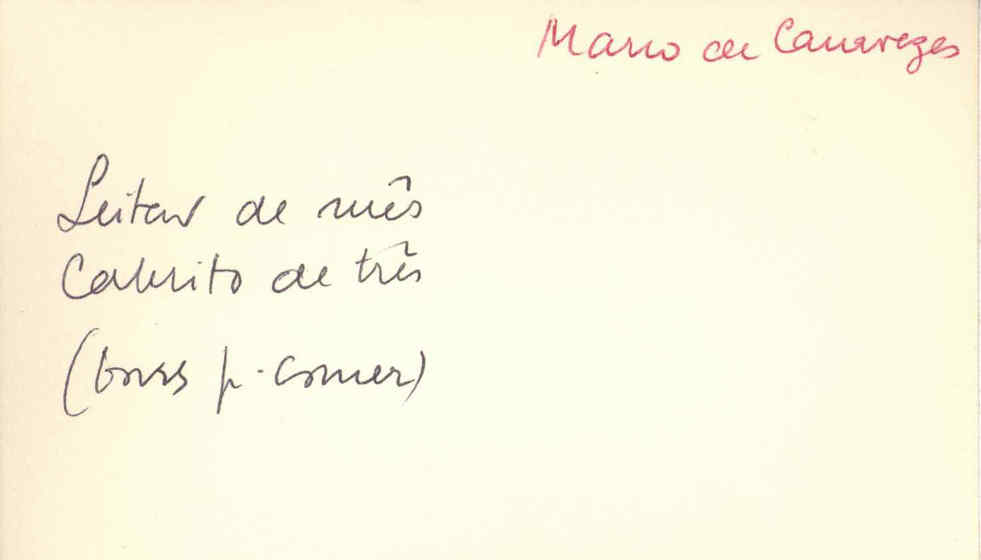 Marco de Canavezes
Leitão de mês
Cabrito de três
(bons p. comer)